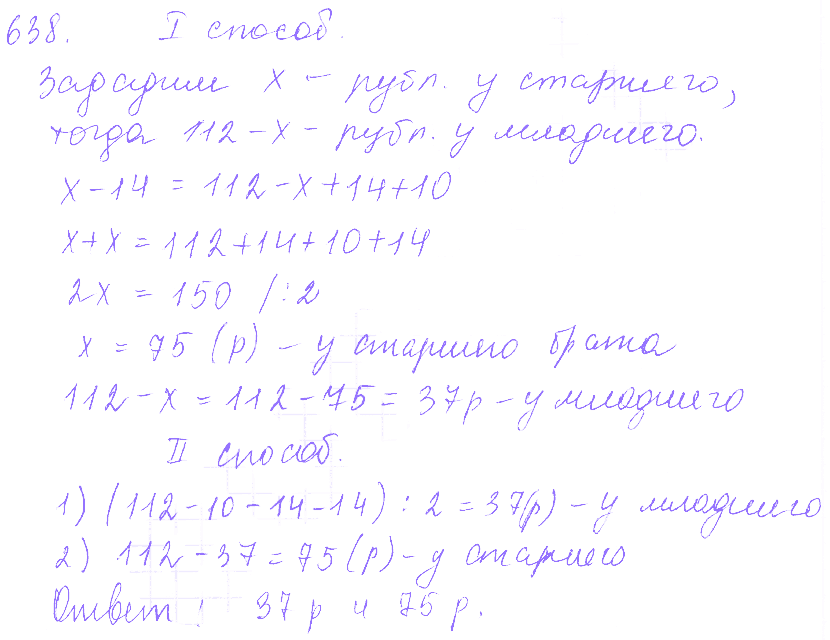 638. I способ.
Зададим x – рубл. у старшего,
тогда 112 – x – рубл. у младшего.
x – 14 = 112 – x + 14 + 10
x + x = 112 + 14 + 10 + 14
2x = 150 /:2
x = 75 (р) – у старшего брата
112 – x = 112 – 75 = 37р – у младшего
II способ.
1) (112 – 10 – 14 – 14) : 2 = 37(р) – у младшего
2) 112 – 37 = 75 (р) – у старшего
Ответ: 37 р и 75 р.